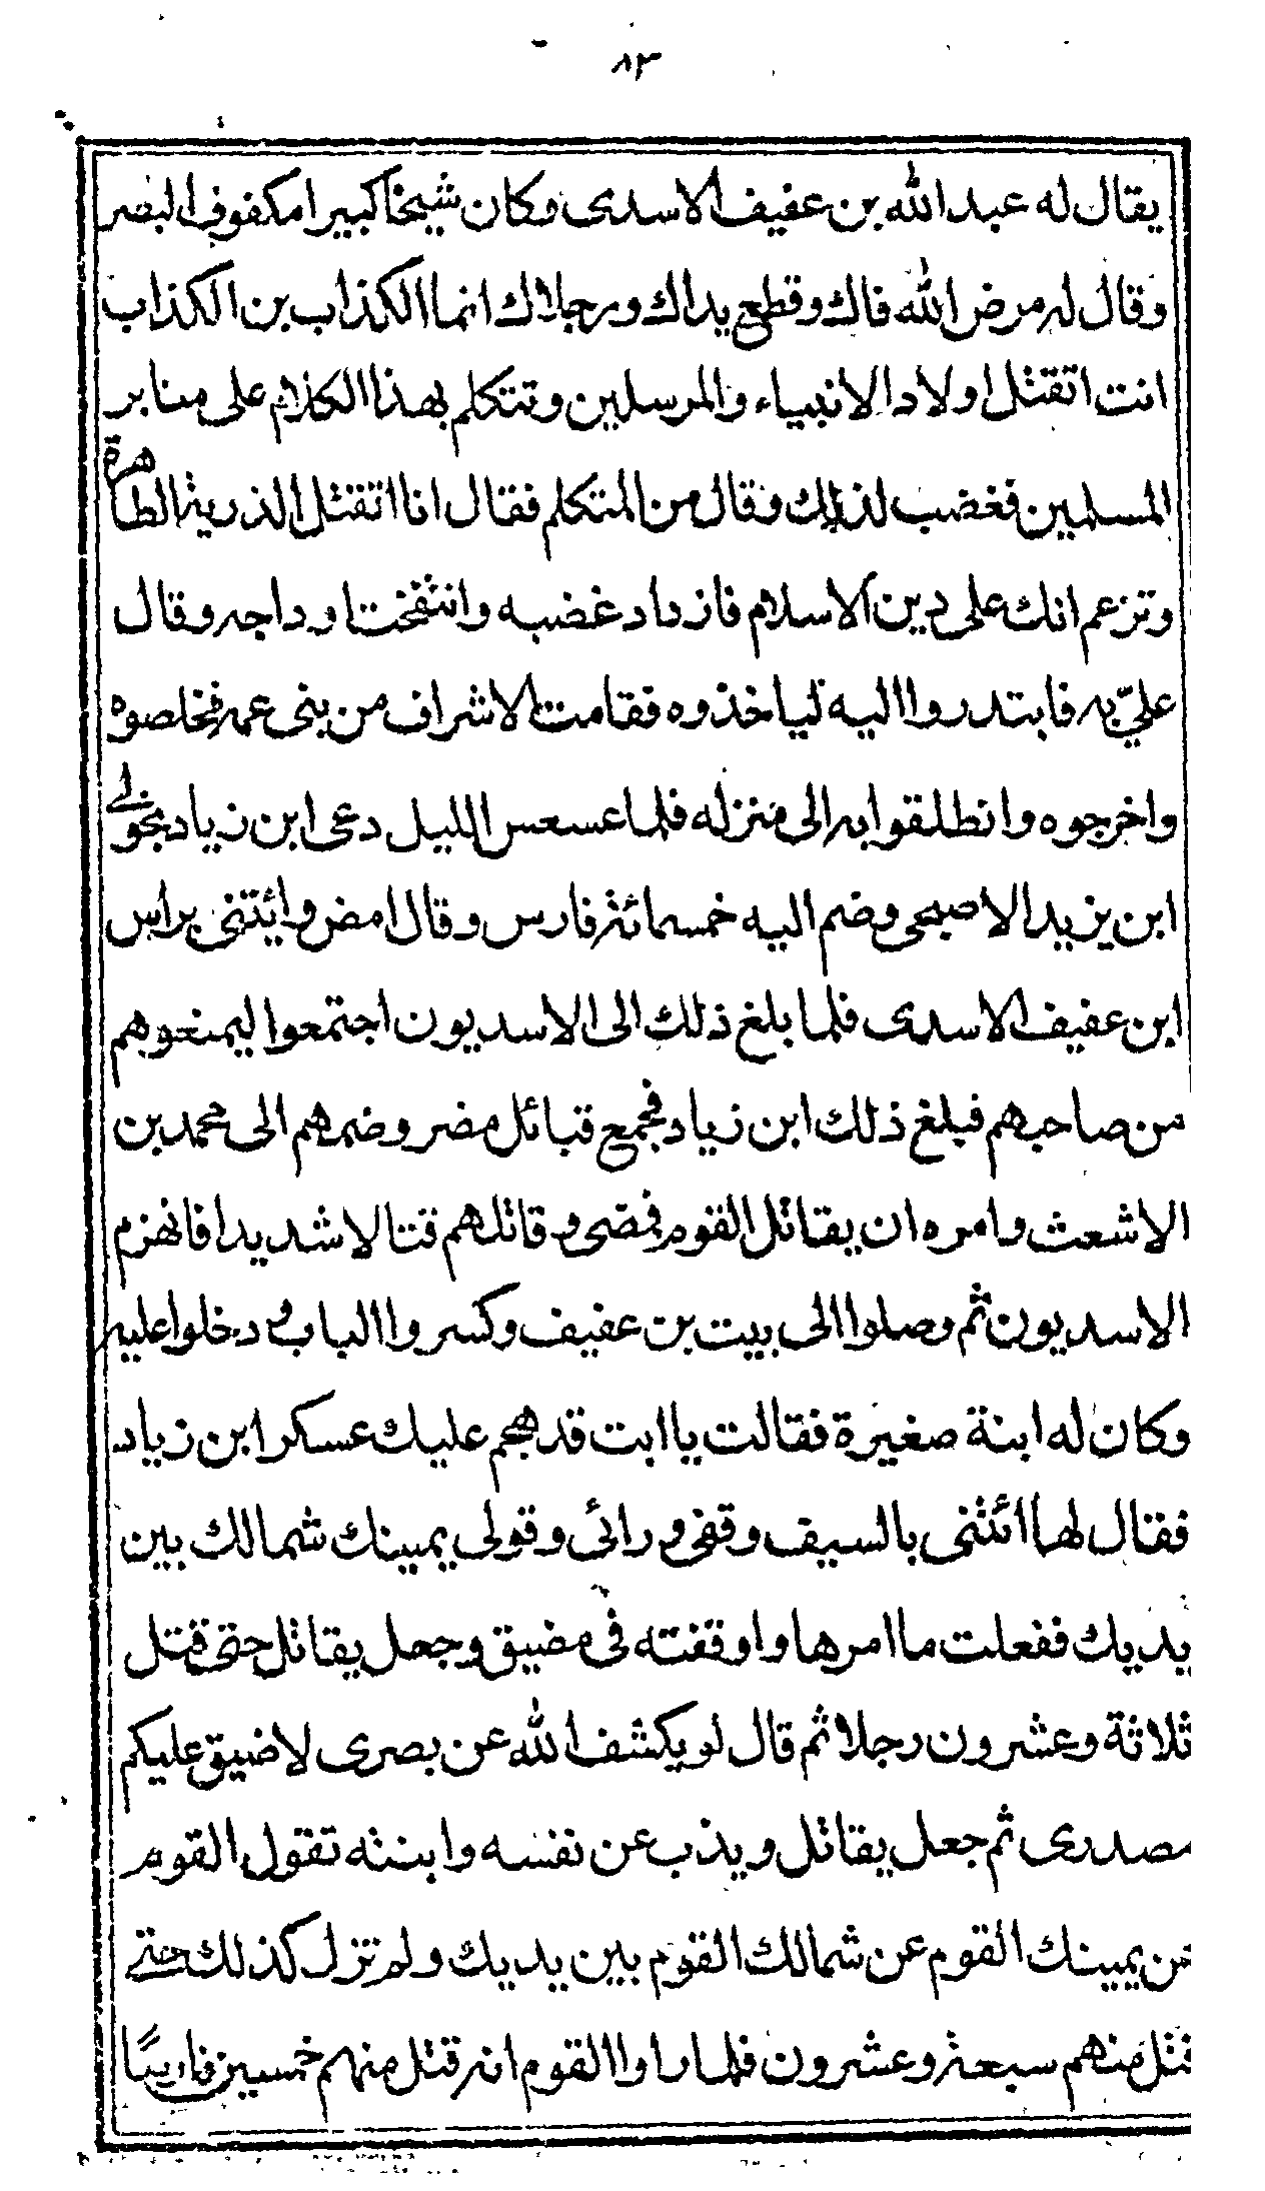 ٨٣
يقال له عبد الله بن عفيف الاسدى وكان شيخا كبيرا مكفوف البصر
وقال له مرض الله فاك وقطع يداك ورجلاك انما الكذاب بن الكذاب
انت اتقتل اولاد الانبياء والمرسلين وتتكلم بهذا الكلام على منابر
المسلمين فغضب لذلك وقال من المتكلم فقال انا اتقتل الذرية الطاهرة
وتزعم انك على دين الاسلام فازداد غضبه وانتفخت اوداجه وقال
عليّ به فابتدروا اليه ليأخذوه فقامت الاشراف من بنى عمه فخلصوه
واخرجوه وانطلقوا به الى منزله فلما عسعس الليل دعى ابن زياد بخولے
ابن يزيد الاصبحى وضم اليه خمسمائة فارس وقال امض وائتنى براس
ابن عفيف الاسدى فلما بلغ ذلك الى الاسديون اجتمعوا ليمنعوهم
من صاحبهم فبلغ ذلك ابن زياد فجمع قبائل مضر وضمهم الى محمد بن
الاشعث وامره ان يقاتل القوم فمضى وقاتلهم قتالا شديدا فانهزم
الاسديون ثم وصلوا الى بيت بن عفيف وكسروا الباب ودخلوا عليه
وكان له ابنة صغيرة فقالت يا ابت قد هجم عليك عسكر ابن زياد
فقال لها ائتنى بالسيف وقفى ورائى وقولى يمينك شمالك بين
يديك ففعلت ما امرها واوقفته فى مضيق وجعل يقاتل حتى قتل
ثلاثة وعشرون رجلا ثم قال لو يكشف الله عن بصرى لاضيق عليكم
مصدرى ثم جعل يقاتل ويذب عن نفسه وابنته تقول القوم
عن يمينك القوم عن شمالك القوم بين يديك ولم تزل كذلك حتے
قتل منهم سبعة وعشرون فلما راوا القوم انه قتل منهم خمسين فارسًا